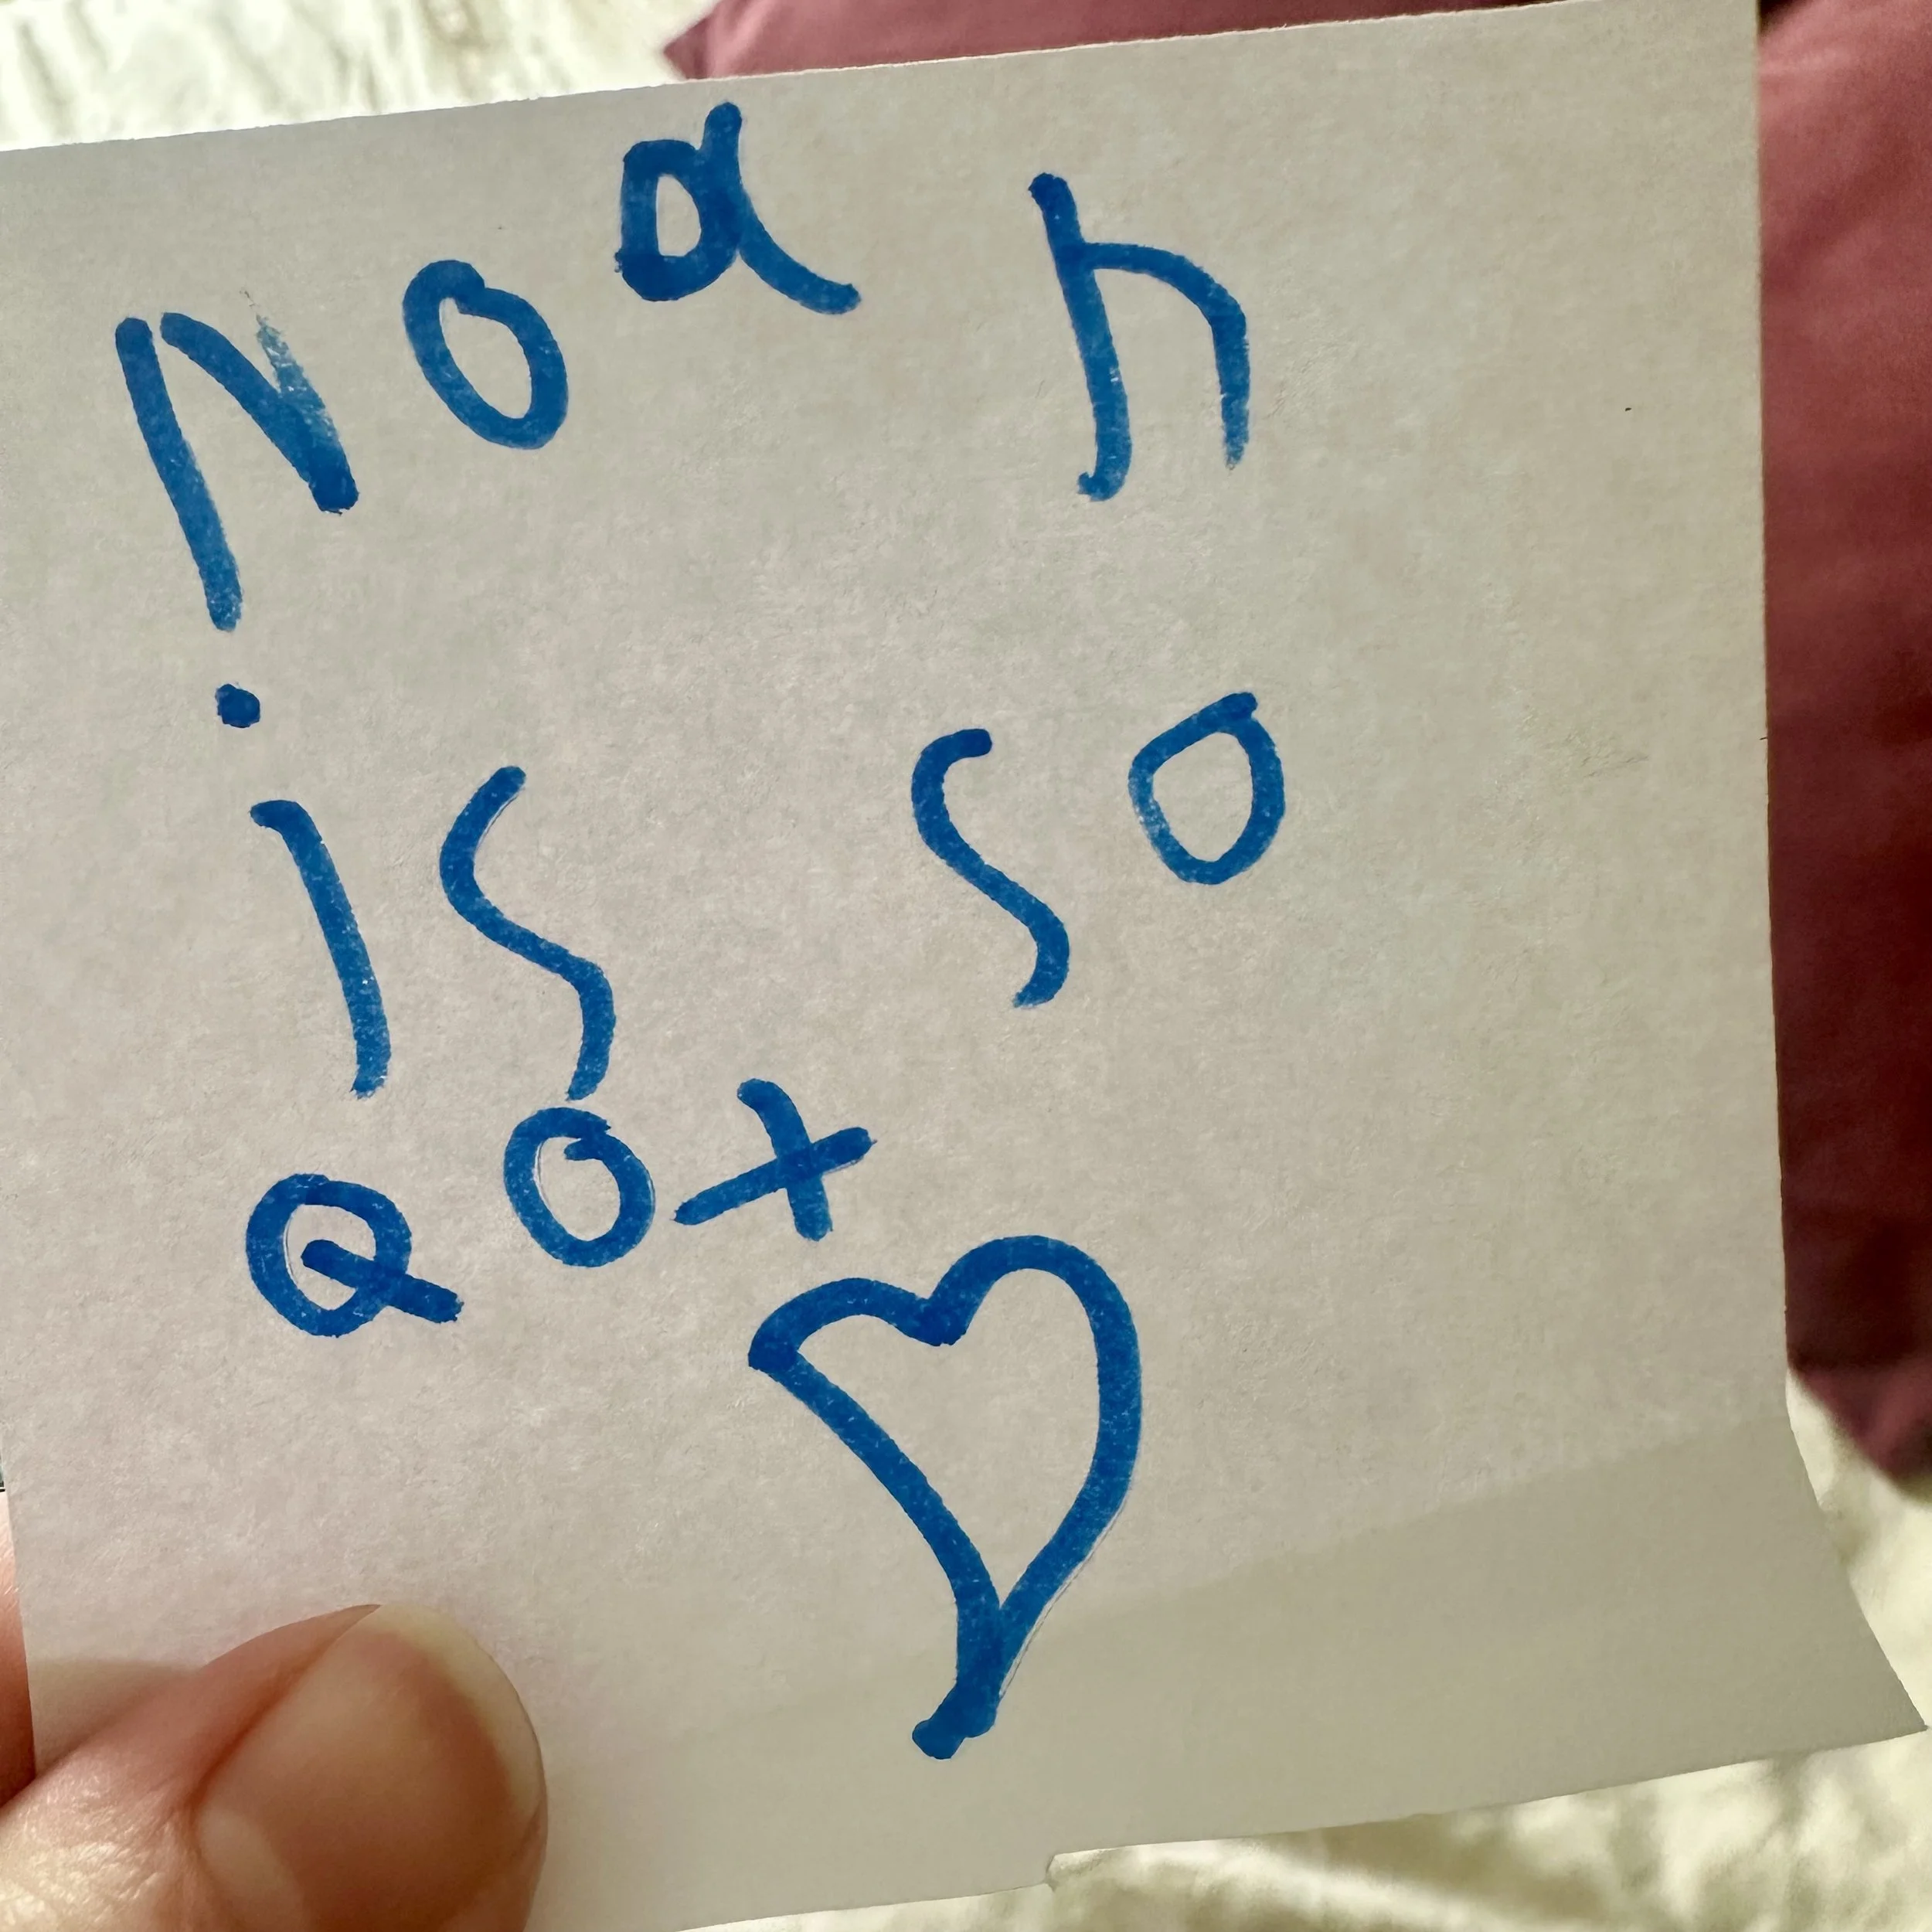 Noah
is so
Qot